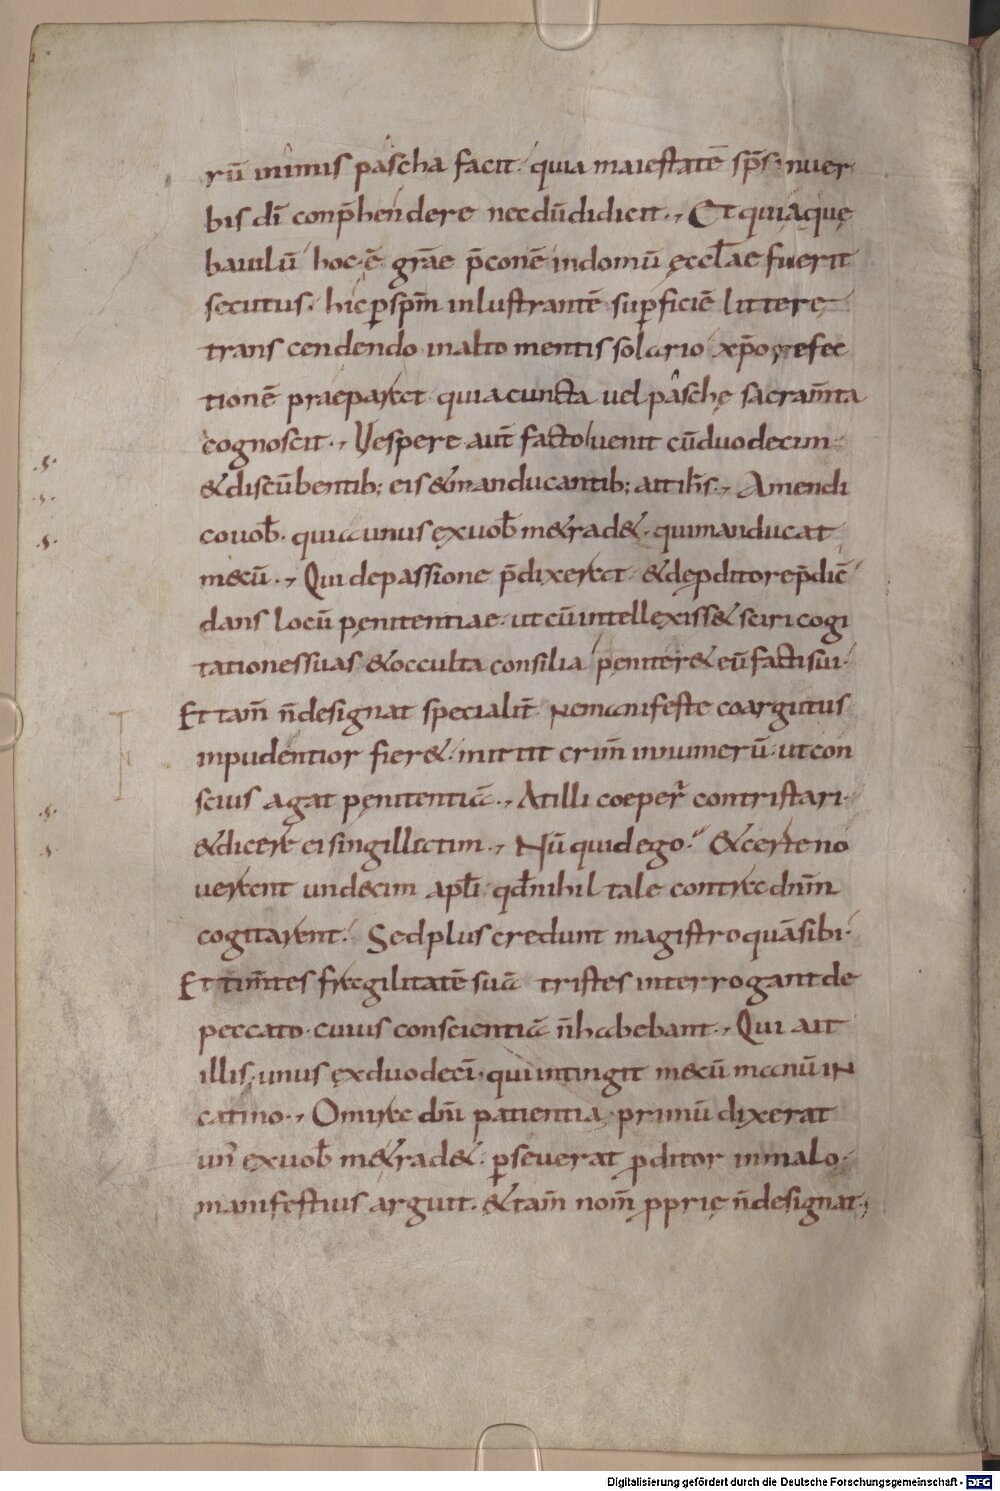 rū in imis pascha facit· quia maiestatē sp̄s· inuer
bis dī conp̄hendere necdū didicit·, Et qui aquę
baiulū hoc ē· grāe p̄conē in domū ęccl̄ae fuerit
secutus· hic ꝑ sp̄m inlustrantē suꝑficiē litterę
transcendendo· in alto mentis solario xp̄o refec
tionē praeparat· quia cuncta uel paschę sacram̄ta
cognoscit·, Uespere aut̄ facto uenit cū duodecim·
& discūbentib; eis & manducantib; ait ih̄s·, Amen di
co uob̄· quia unus ex uob̄ me tradet· qui manducat
mecū·, Qui de passione p̄dixerat· & de ꝓditore p̄dic̄
dans locū pęnitentiae· ut cū intellexisset sciri cogi
tationes suas & occulta consilia pęniteret eū facti sui·
Et tam̄ n̄ designat specialit̄ Ne manifeste coargutus
inpudentior fieret· mittit crim̄ in numerū· ut con
scius agat pęnitentiā·, At illi coeper̄ contristari·
& dicere ei singillatim·, Nū quid ego? & certe no
uerant undecim apl̄i· qd̄ nihil tale contra dn̄m
cogitarent· Sed plus credunt magistro quā sibi·
Et tim̄tes fragilitatē suā tristes interrogant de
peccato· cuius conscientiā n̄ habebant·, Qui ait
illis· unus ex duodecī· qui intingit mecū manū in
catino·, O mira dn̄i patientia· primū dixerat
un̄ ex uob̄ me tradet· ꝑseuerat ꝓditor in malo·
manifestius arguit· & tam̄ nom̄ ꝓprię n̄ designat·,
Digitalisierung gefördert durch die Deutsche Forschungsgemeinschaft - DFG